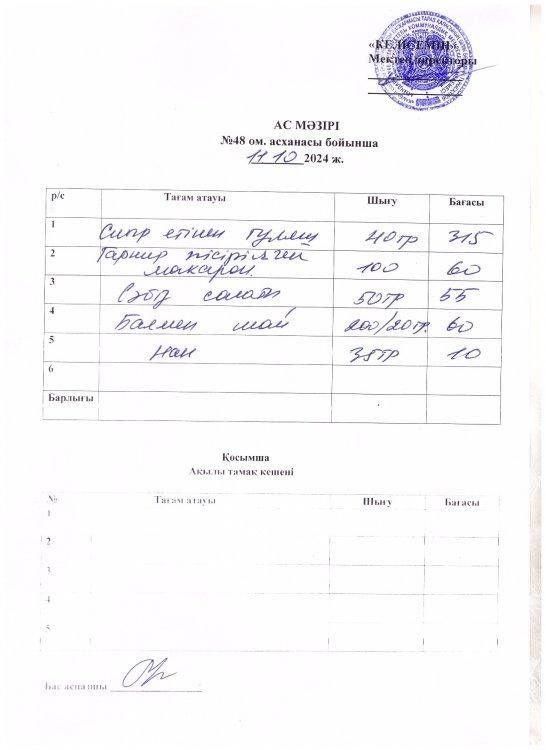 «КЕЛІСЕМІН»
Мектеп директоры
АС МӘЗІРІ
№48 ом. асханасы бойынша
11.10 2024 ж.
р/с Тағам атауы Шығу Бағасы
1 Сиыр етінен гуляш 40гр 315
2 Гарнир пісірілген макарон 100 60
3 Сәбіз салаты 50гр 55
4 Балмен шай 200/20гр. 60
5 Нан 35гр 10
6
Барлығы
Қосымша
Ақылы тамақ кешені
№ Тағам атауы Шығу Бағасы
1
2
3
4
5
Бас аспазшы